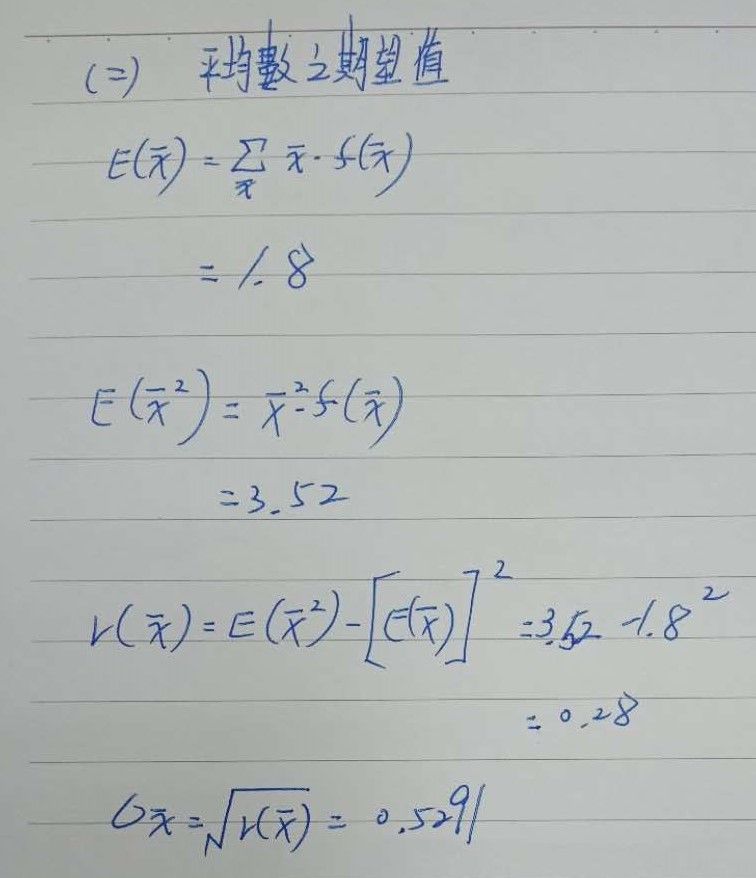 (二) 平均數之期望值
E(x̄) = Σx̄ x̄·f(x̄)
= 1.8
E(x̄²) = x̄²·f(x̄)
= 3.52
V(x̄) = E(x̄²) - [E(x̄)]² = 3.52 - 1.8²
= 0.28
σx̄ = √V(x̄) = 0.5291